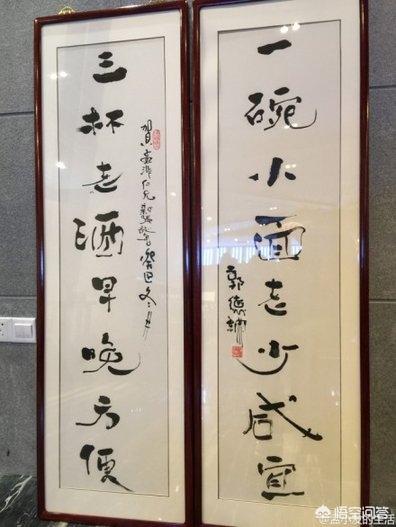 一碗小面老少咸宜
郭德纲
賀孟非仁兄
癸巳冬月
三杯老酒早晚方便
悟空问答
的生活